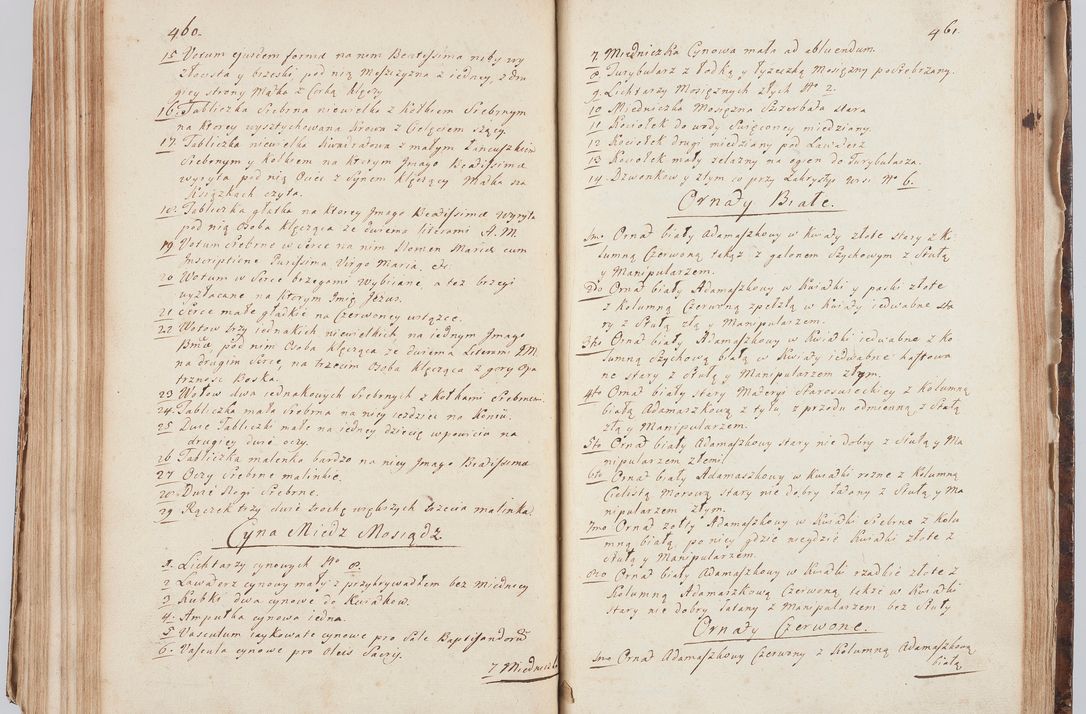 460.
15 Votum ejusdem forma na nim Beatissima niby wy
złacista y brzeski, pod nią Męszczyzna z iedney, z dru
giey strony Matka z Corką klęczy
16. Tabliczka Srebrna niewielka z kołkiem Srebrnym
na ktorey wysztychowana Krowa z Cielęciem
17. Tabliczka niewielka Kwadratowa z małym Łancuszkiem
Srebrnym y kołkiem na ktorym Imago Beatissima
wyryta pod nią Ociec z Synem klęczący Matka
Książkach czyta.
18. Tabliczka gładka na ktorey Imago Beatissima wyryta
pod nią Osoba klęcząca ze dwiema literami A. M.
19 Votum Srebrne w Serce na nim Nomen Maria cum
Inscriptione Purissima Virgo Maria, etc.
20 Wotum w Serce brzegami wybiiane, a też brzegi
wyzłacane na ktorym Imię Jezus.
21 Serce małe gładkie na Czerwoney wstążce.
22 Wotow trzy iednakich niewielkich na iednym Imago
Bmæ, pod nim Osoba klęcząca ze dwiema Literami
na drugim Serce, na trzecim Osoba klęcząca z gory Opa
trznosc Boska.
23 Wotow dwa iednakowych Srebrnych z kołkami Srebrnemi
24. Tabliczka mała Srebrna na niey iezdziec na Koniu.
25 Dwie Tabliczki małe na iedney dziecię w powiciu na
drugiey dwie oczy.
26 Tabliczka malenka bardzo na niey Imago Beatissima
27 Oczy Srebrne malinkie.
28 Dwie Nogi Srebrne.
29 Rączek trzy dwie trochę większych trzecia malinka
Cyna Miedz Mosiądz.
1. Lichtarzy cynowych No 8.
2 Lawaterz cynowy mały z przykrywadłem bez Miednicy
3 Kubki dwa cynowe do Kwiatkow.
4. Ampułka cynowa iedna.
5 Vasculum cynowe pro Sale Baptisandorum
6. Vascula cynowe pro Oleis Sacris.
7 Miedniczka
461.
7. Miedniczka Cynowa mała ad abluendum.
8 Turybularz z łodką y łyżeczką Mosiężny posrebrzany.
9. Lichtarzy Mosiężnych złych No 2.
10 Miedniczka Mosiężna Szczerbata stara
11 Kociołek do wody Swięconey miedziany
12 Kociołek drugi miedziany pod Lawaterz
13 Kociołek mały zelazny na ogien do Turybularza.
14 Dzwonkow y z tym co przy Zakrystyi wisi No 6.
Ornaty Białe.
1mo Ornat biały Adamaszkowy w kwiaty złote stary z Ko
lumną Czerwoną takąż z galonem Szychowym z Stułą
y Manipularzem.
2do Ornat biały Adamaszkowy w Kwiatki y paski złote
z Kolumną Czerwoną w Kwiaty iedwabne sta
ry z Stułą złą y Manipularzem.
3tio Ornat biały Adamaszkowy w Kwiatki iedwabne z Ko
lumną Szychową białą w Kwiaty iedwabne haftowa
ne stary z Stułą y Manipularzem złym.
4to Ornat biały stary Materyi Staroswieckiey z kolumną
białą Adamaszkową z tyłu, z przodu odmienną z Stułą
złą y Manipularzem.
5to Ornat biały Adamaszkowy stary nie dobry z Stułą y Ma
nipularzem złemi
6to Ornat biały Adamaszkowy w Kwiatki rozne z Kolumną
Cielistą Morową stary nie dobry łatany z Stułą y Ma
nipularzem złym.
7mo Ornat zołty Adamaszkowy w Kwiatki Srebrne z Kolu
mną białą, po niey gdzie niegdzie Kwiatki złote z
Stułą y Manipularzem.
8vo Ornat biały Adamaszkowy w Kwiatki rzadkie złote z
Kolumną Adamaszkową Czerwoną także w Kwiatki
stary nie dobry łatany z Manipularzem bez Stuły
Ornaty Czerwone.
1mo Ornat Adamaszkowy Czerwony z Kolumną Adamaszkową
białą